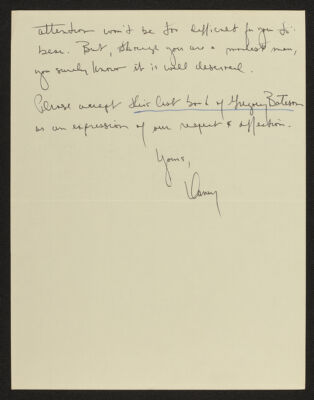 attention won't be too difficult for you to
bear. But, though you are a modest man,
you surely know it is well deserved.
Please accept this last book of Gregory Bateson
as an expression of our respect & affection.
Yours,